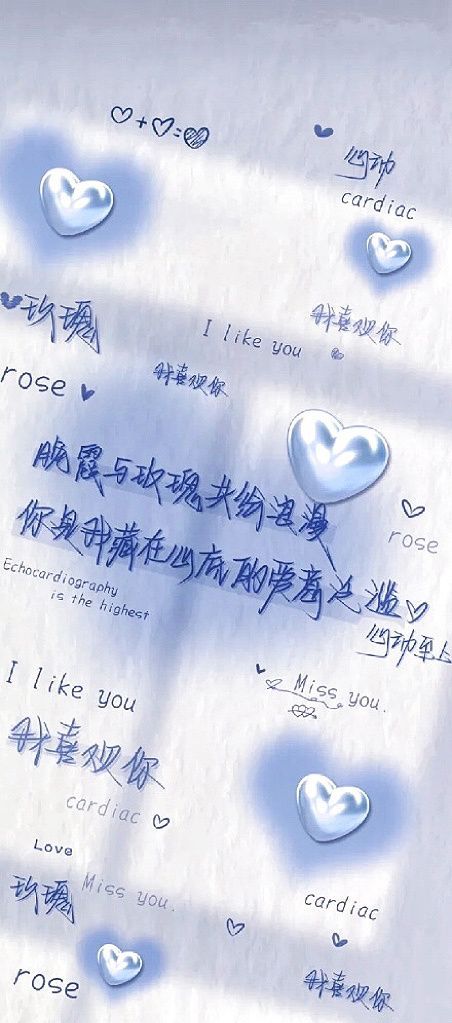 心动
cardiac
玫瑰
I like you
我喜欢你
rose
我喜欢你
晚霞与玫瑰共给浪漫
rose
你是我藏在心底的爱意泛滥
Echocardiography
is the highest
心动至上
I like you
Miss you.
我喜欢你
cardiac
Love
玫瑰
Miss you.
cardiac
rose
我喜欢你